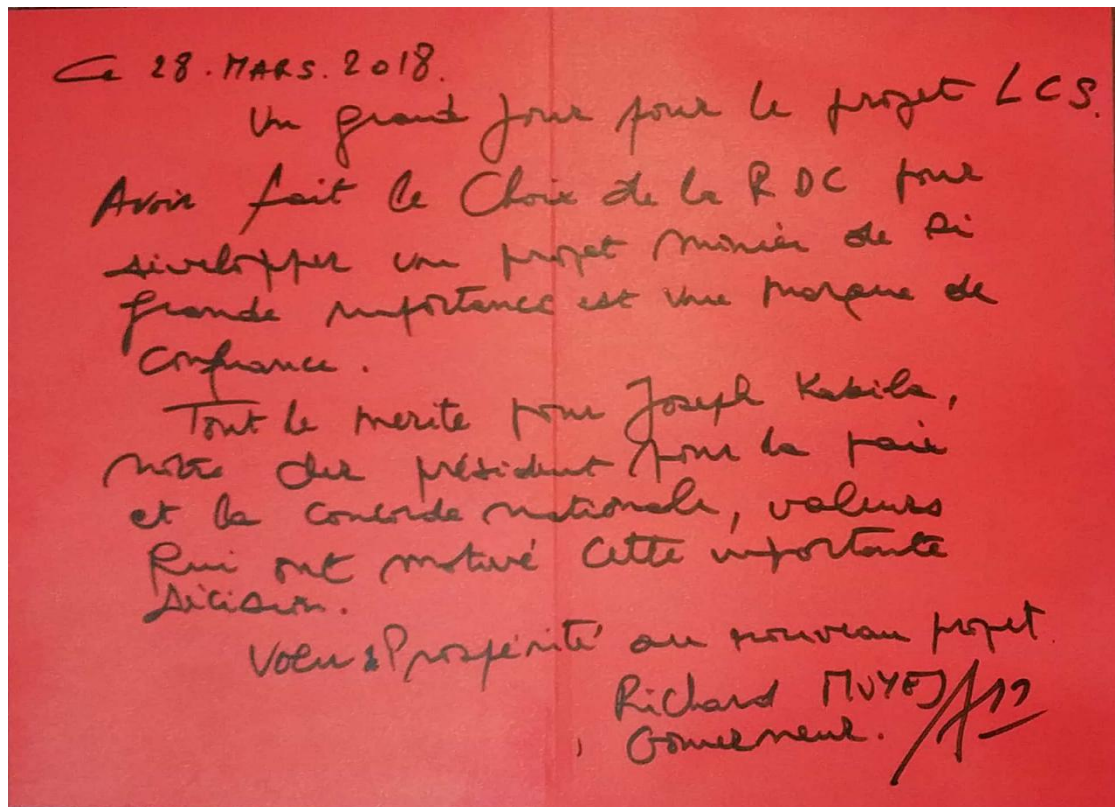 Ce 28. MARS. 2018.
Un grand jour pour le projet LCS.
Avoir fait le choix de la RDC pour
développer un projet minier de si
grande importance est une marque de
confiance.
Tout le merite pour Joseph Kabila,
notre cher président pour la paix
et la concorde nationale, valeurs
qui ont motivé cette importante
décision.
Voeu de Prospérité au nouveau projet.
Richard MUYEJ
Gouverneur.